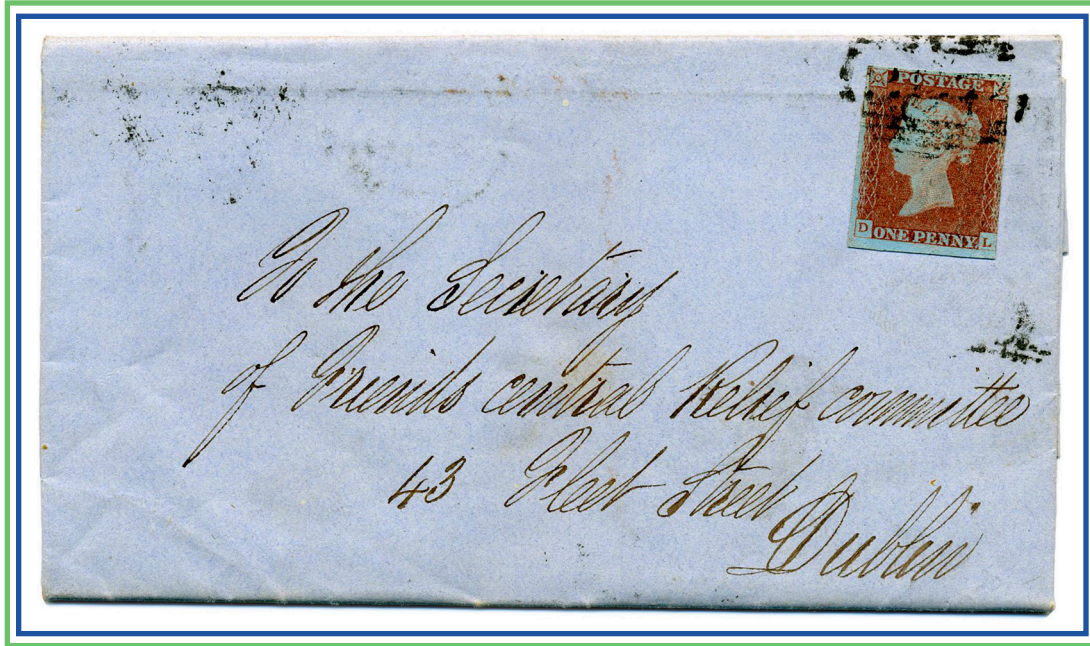 POSTAGE
D ONE PENNY L
To the Secretary
of Friends central Relief committee
43 Fleet Street
Dublin